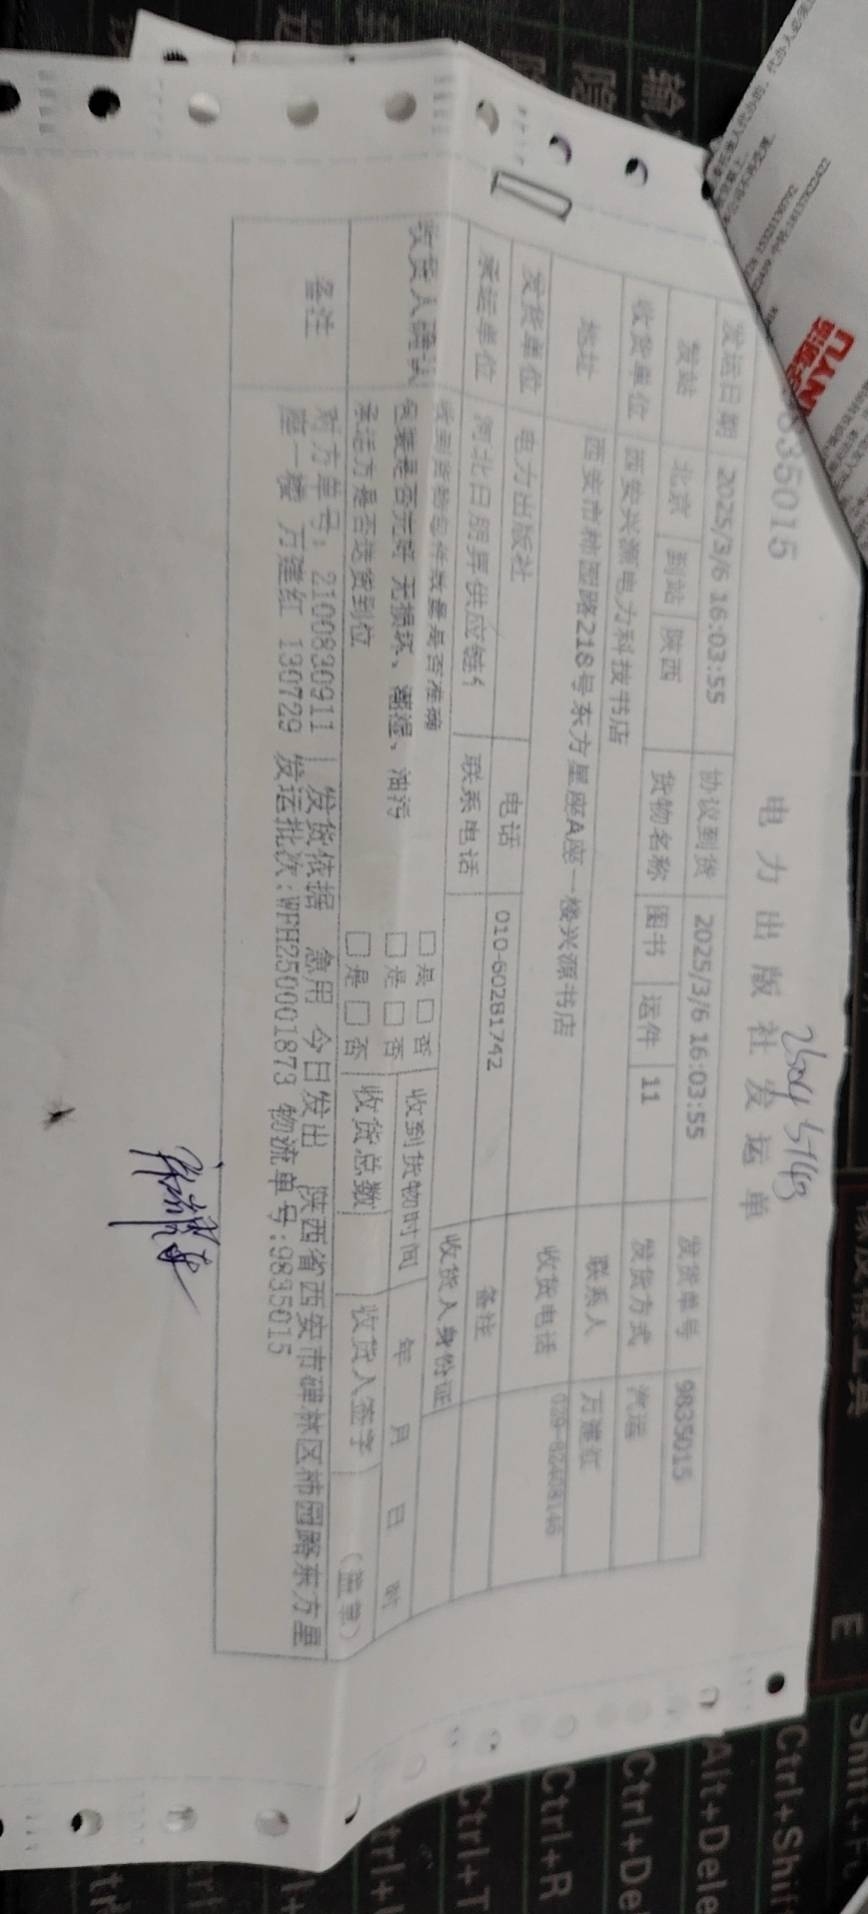 电力出版社发运单
835015
发运日期 2025/3/6 16:03:55 协议到货 2025/3/6 16:03:55 发货单号 9835015
发站 北京 到站 陕西 货物名称 图书 运件 11 发货方式 汽运
收货单位 西安兴源电力科技书店 联系人
地址 西安市柿园路218号东方星座A座一楼兴源书店 收货电话
发货单位 电力出版社 电话 010-60281742 备注
承运单位 河北日朋昇供应链 联系电话 收货人身份证
收货人确认 收到货物每件数量是否准确 □是 □否 收到货物时间 年 月 日 时
包装是否完好 无损坏、潮湿、油污 □是 □否
承运方是否送货到位 □是 □否 收货总数 收货人签字 (盖章)
备注 对方单号：2100830911 | 发货依据 急用 今日发出 陕西省西安市碑林区柿园路东方星
座一楼 万建红 130729 发运批次:WFH250001873 物流单号:9835015
Ctrl+Shif
Alt+Dele
Ctrl+De
Ctrl+R
Ctrl+T